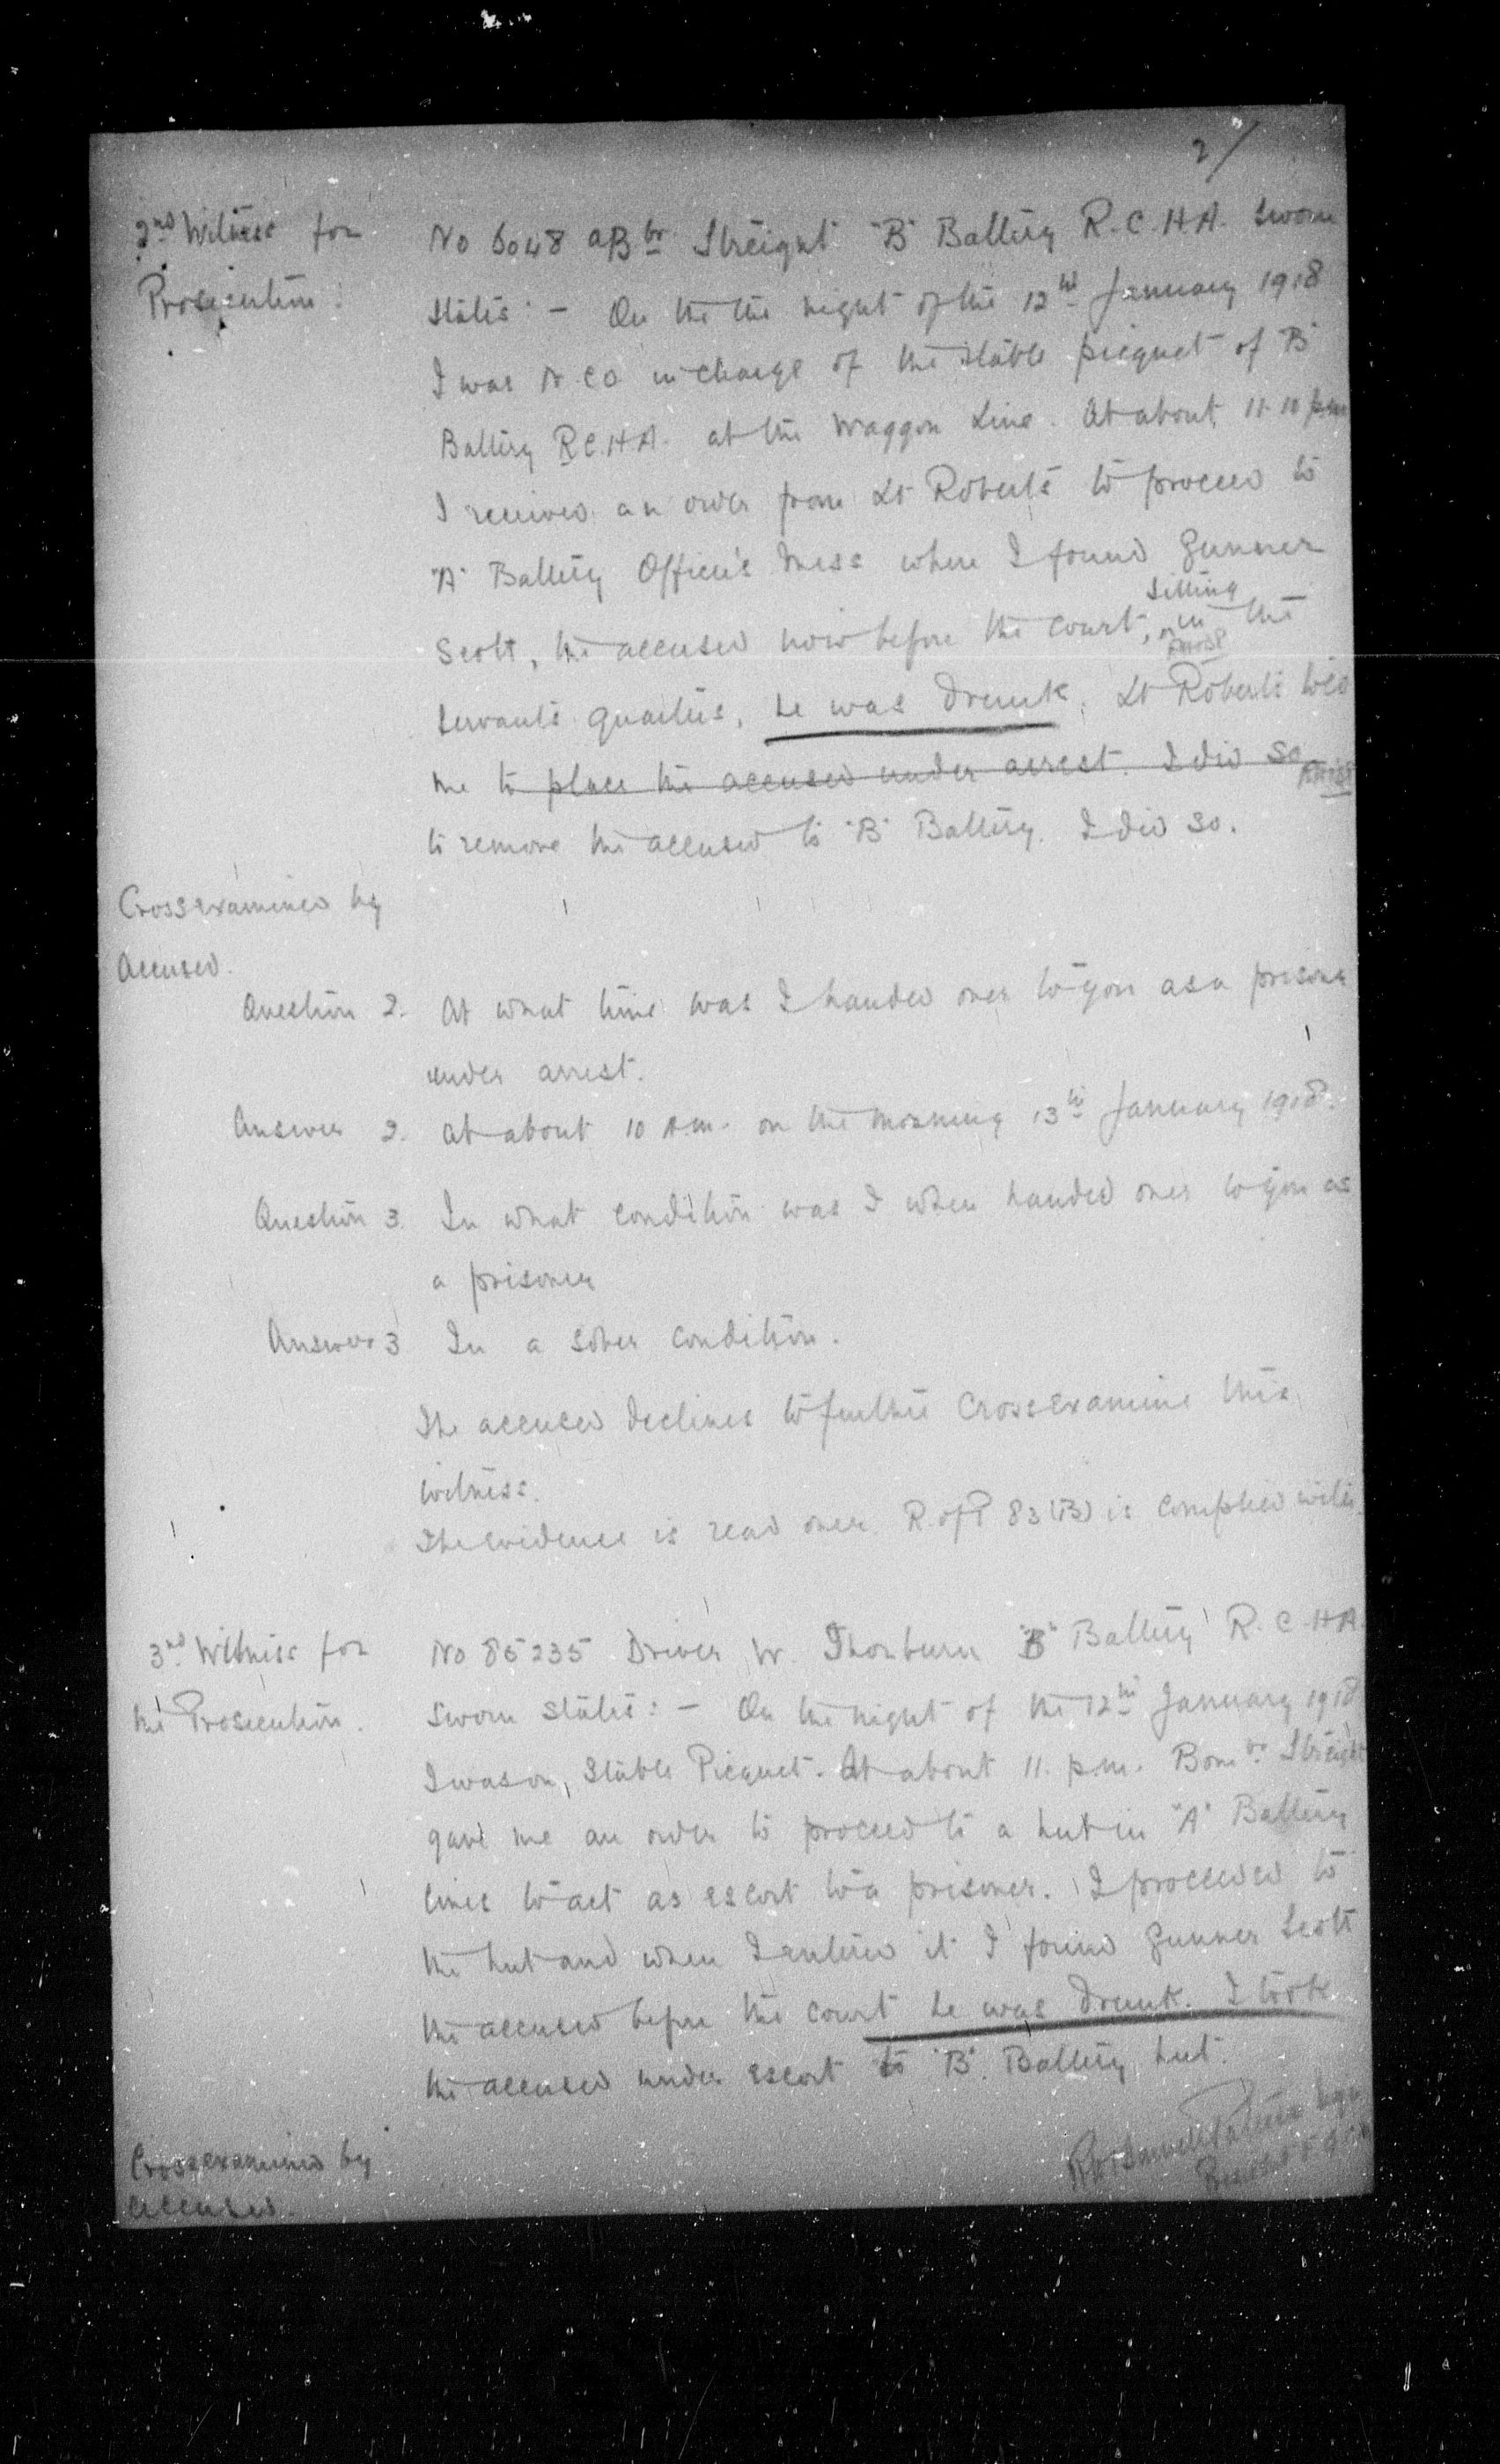 2/
2nd Witness for
Prosecution.
No 6048 a/Bbr Streight "B" Battery R.C.H.A. Sworn
States: - On the the night of the 12th January 1918
I was N.C.O in charge of the stable picquet of "B"
Battery R.C.H.A. at the Waggon Line. At about 11.10 p.m
I received an order from Lt Roberts to proceed to
"A" Battery Officer's Mess where I found Gunner
Scott, the accused now before the court, sitting in the
servants quarters, he was drunk. Lt Roberts told
me to place the accused under arrest. I did so
to remove the accused to "B" Battery. I did so.
Crossexamined by
Accused.
Question 2. At what time was I handed over to you as a prisoner
under arrest.
Answer 2. At about 10 A.m. on the morning 13th January 1918.
Question 3. In what condition was I when handed over to you as
a prisoner
Answer 3 In a sober condition.
The accused declines to further crossexamine this
witness.
The evidence is read over. R. of P 83 (B) is complied with.
3rd Witness for
the Prosecution.
No 85235 Driver W. Thorburn "B" Battery R.C.H.A.
Sworn States: - On the night of the 12th January 1918
I was on, Stable Picquet. At about 11. p.m. Bombr. Streight
gave me an order to proceed to a hut in "A" Battery
lines to act as escort to a prisoner. I proceeded to
the hut and when I entered it I found Gunner Scott
the accused before the court he was drunk. I took
the accused under escort to "B". Battery hut.
Crossexamined by
accused.